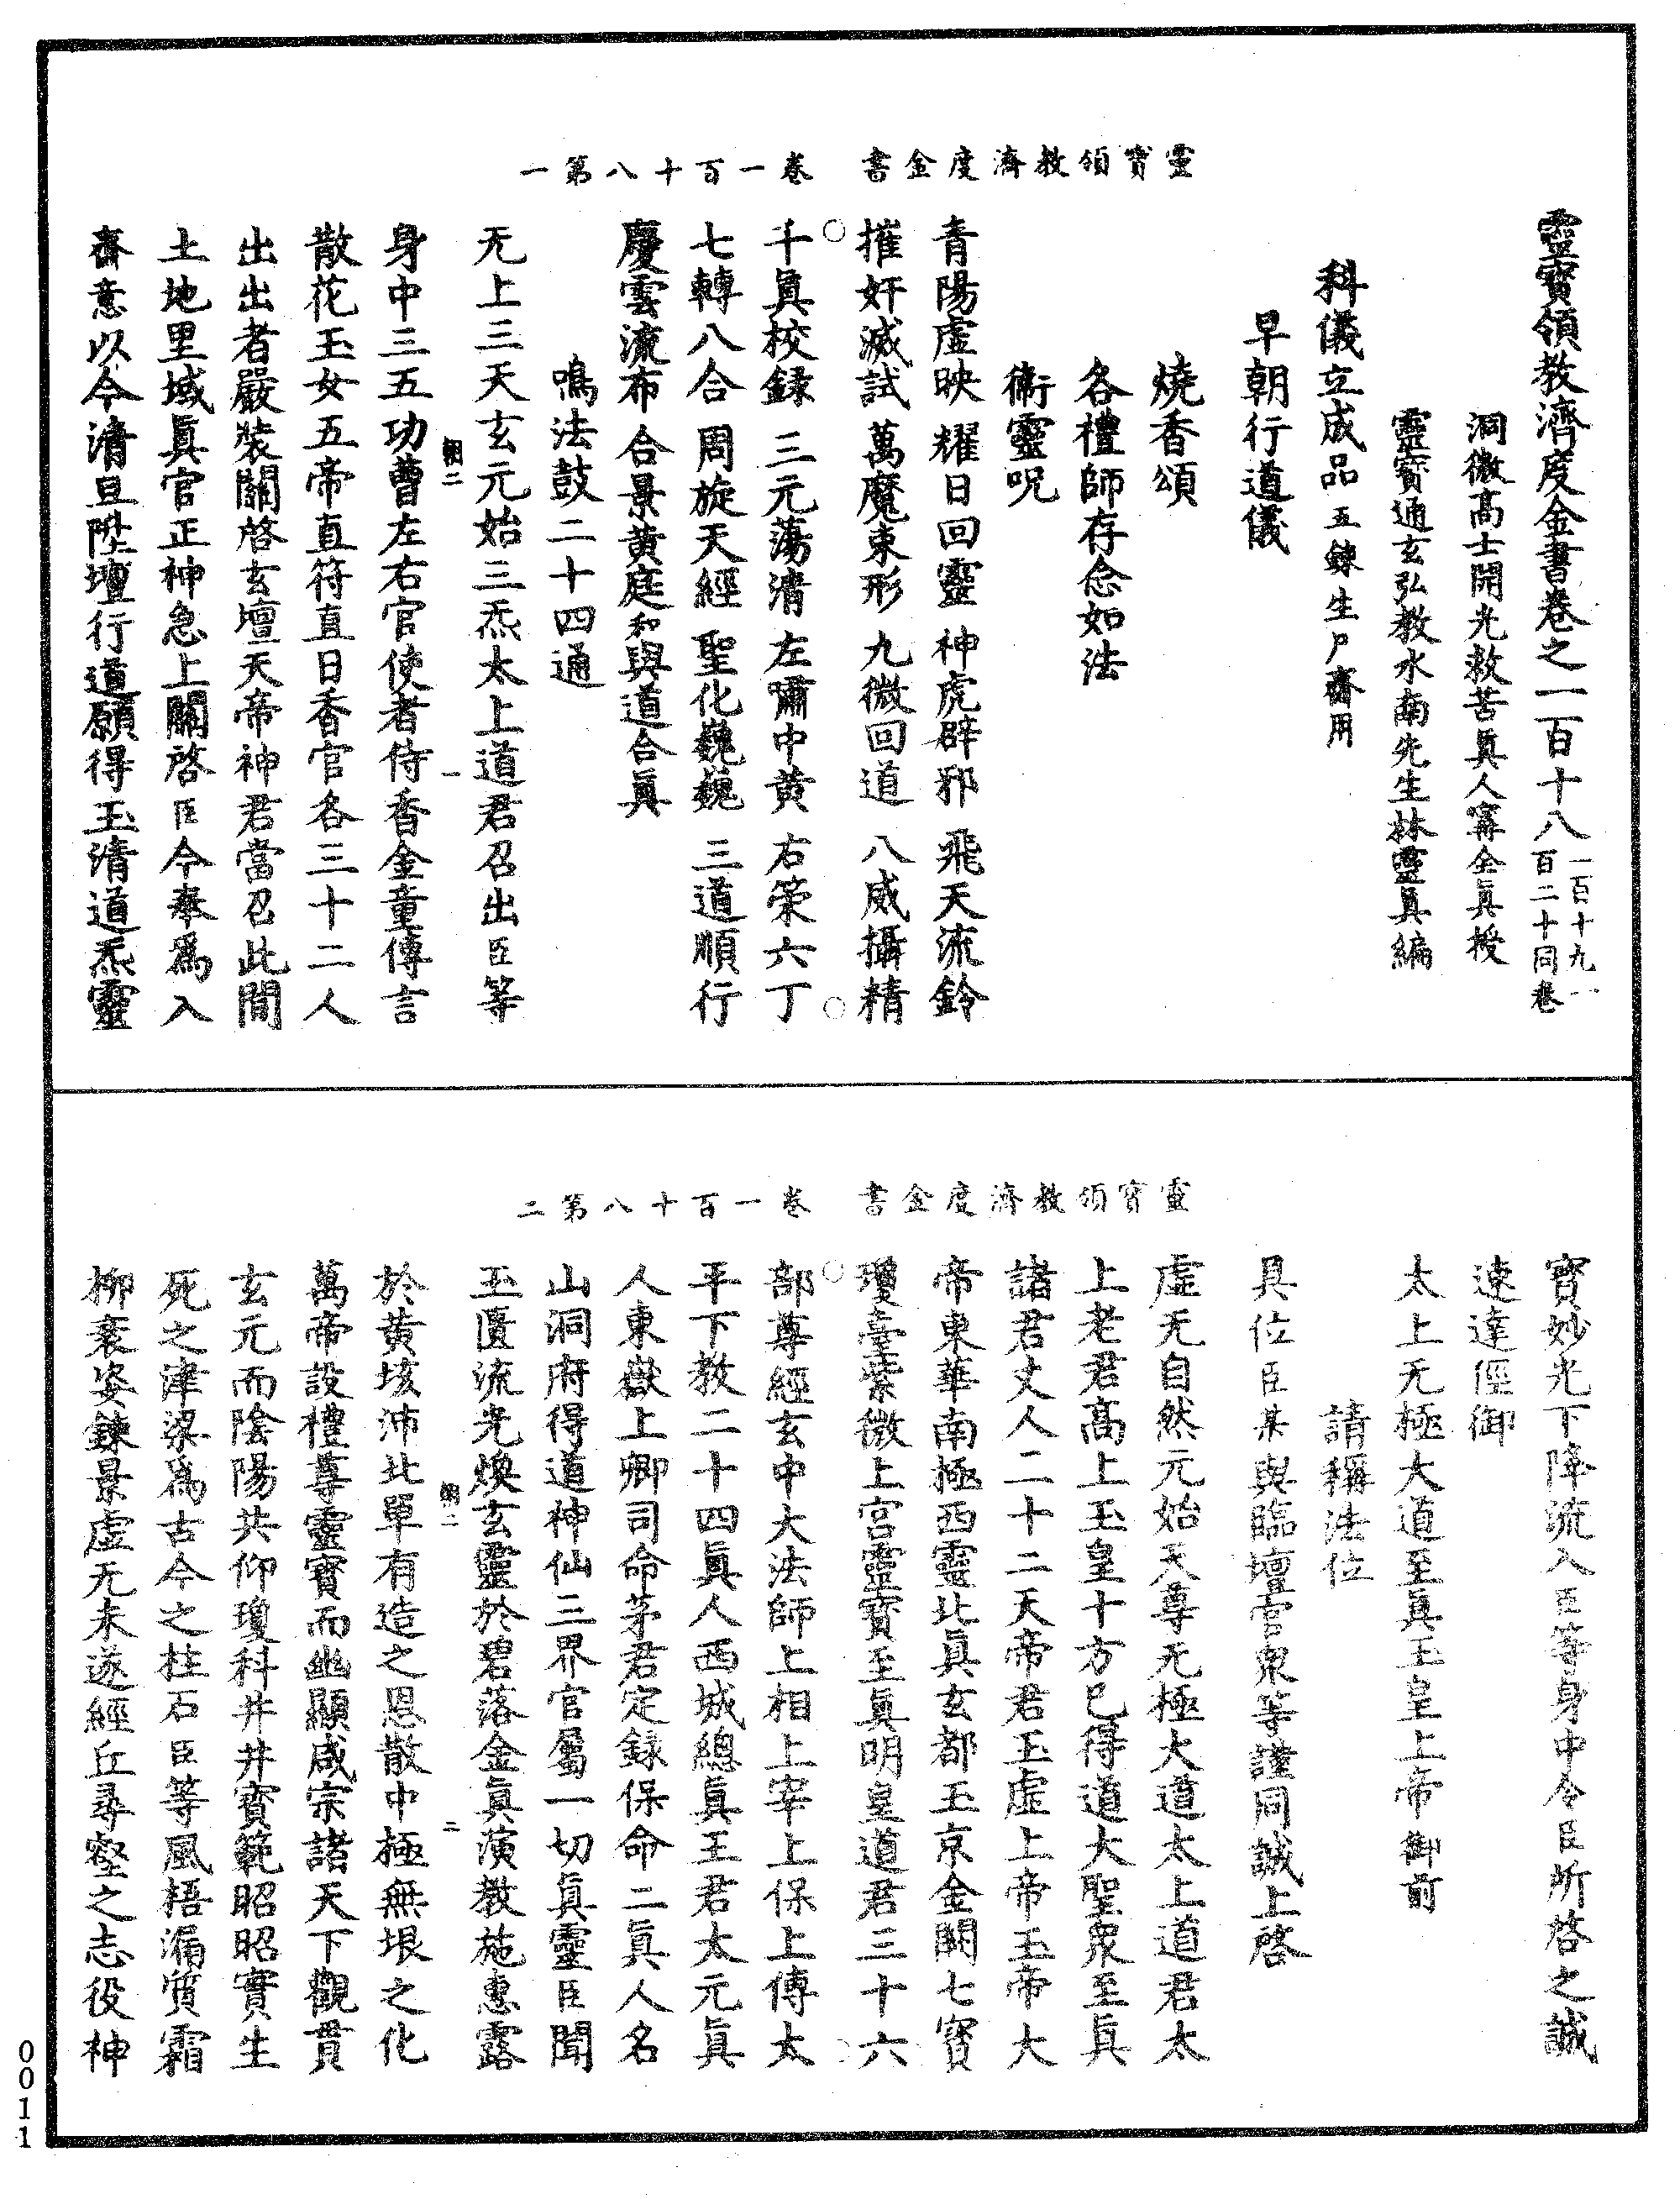 靈寳領教濟度金書　卷一百一十八第一
靈寳領教濟度金書卷之一百十八一百十九一百二十同卷
洞微高士開光救苦眞人甯全眞授
靈寳通玄弘教水南先生林靈眞編
科儀立成品五鍊生尸齋用
早朝行道儀
燒香頌
各禮師存念如法
衞靈呪
青陽虛映　耀日回靈　神虎辟邪　飛天流鈴
摧奸滅試　萬魔束形　九微回道　八威攝精
千眞校録　三元蕩清　左嘯中黄　右策六丁
七轉八合　周旋天經　聖化巍巍　三道順行
慶雲流布　合景黄庭和與道合眞
鳴法鼓二十四通
无上三天玄元始三炁太上道君召出臣等
身中三五功曹左右官使者侍香金童傳言
散花玉女五帝直符直日香官各三十二人
出出者嚴裝關啓玄壇天帝神君當召此間
土地里域眞官正神急上關啓臣今奉爲入
齋意以今清旦陞壇行道願得玉清道炁靈
靈寳領教濟度金書　卷一百十八第二
寳妙光下降流入臣等身中令臣所啓之誠
速達徑御
太上无極大道至眞玉皇上帝御前
請稱法位
具位臣某與臨壇官衆等謹同誠上啓
虛无自然元始天尊无極大道太上道君太
上老君高上玉皇十方已得道大聖衆至眞
諸君丈人三十二天帝君玉虛上帝玉帝大
帝東華南極西靈北眞玄都玉京金闕七寳
瓊臺紫微上宮靈寳至眞明皇道君三十六
部尊經玄中大法師上相上宰上保上傳太
平下教二十四眞人西城總眞王君太元眞
人東嶽上卿司命茅君定録保命二眞人名
山洞府得道神仙三界官屬一切眞靈臣聞
玉匱流光煥玄靈於碧落金眞演教施惠露
於黄垓沛北單有造之恩散中極無垠之化
萬帝設禮尊靈寳而幽顯咸宗諸天下觀貫
玄元而陰陽共仰瓊科井井寳範昭昭實生
死之津梁爲古今之柱石臣等風梧漏質霜
柳衰姿鍊景虛无未遂經丘尋壑之志役神
0011